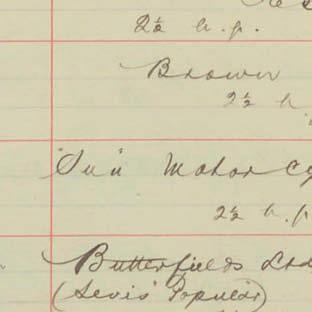 2½ h.p.
Brown
2½ h
"Sun" Motor Cy
2½ h.p
Butterfields Ltd
(Levis Popular)